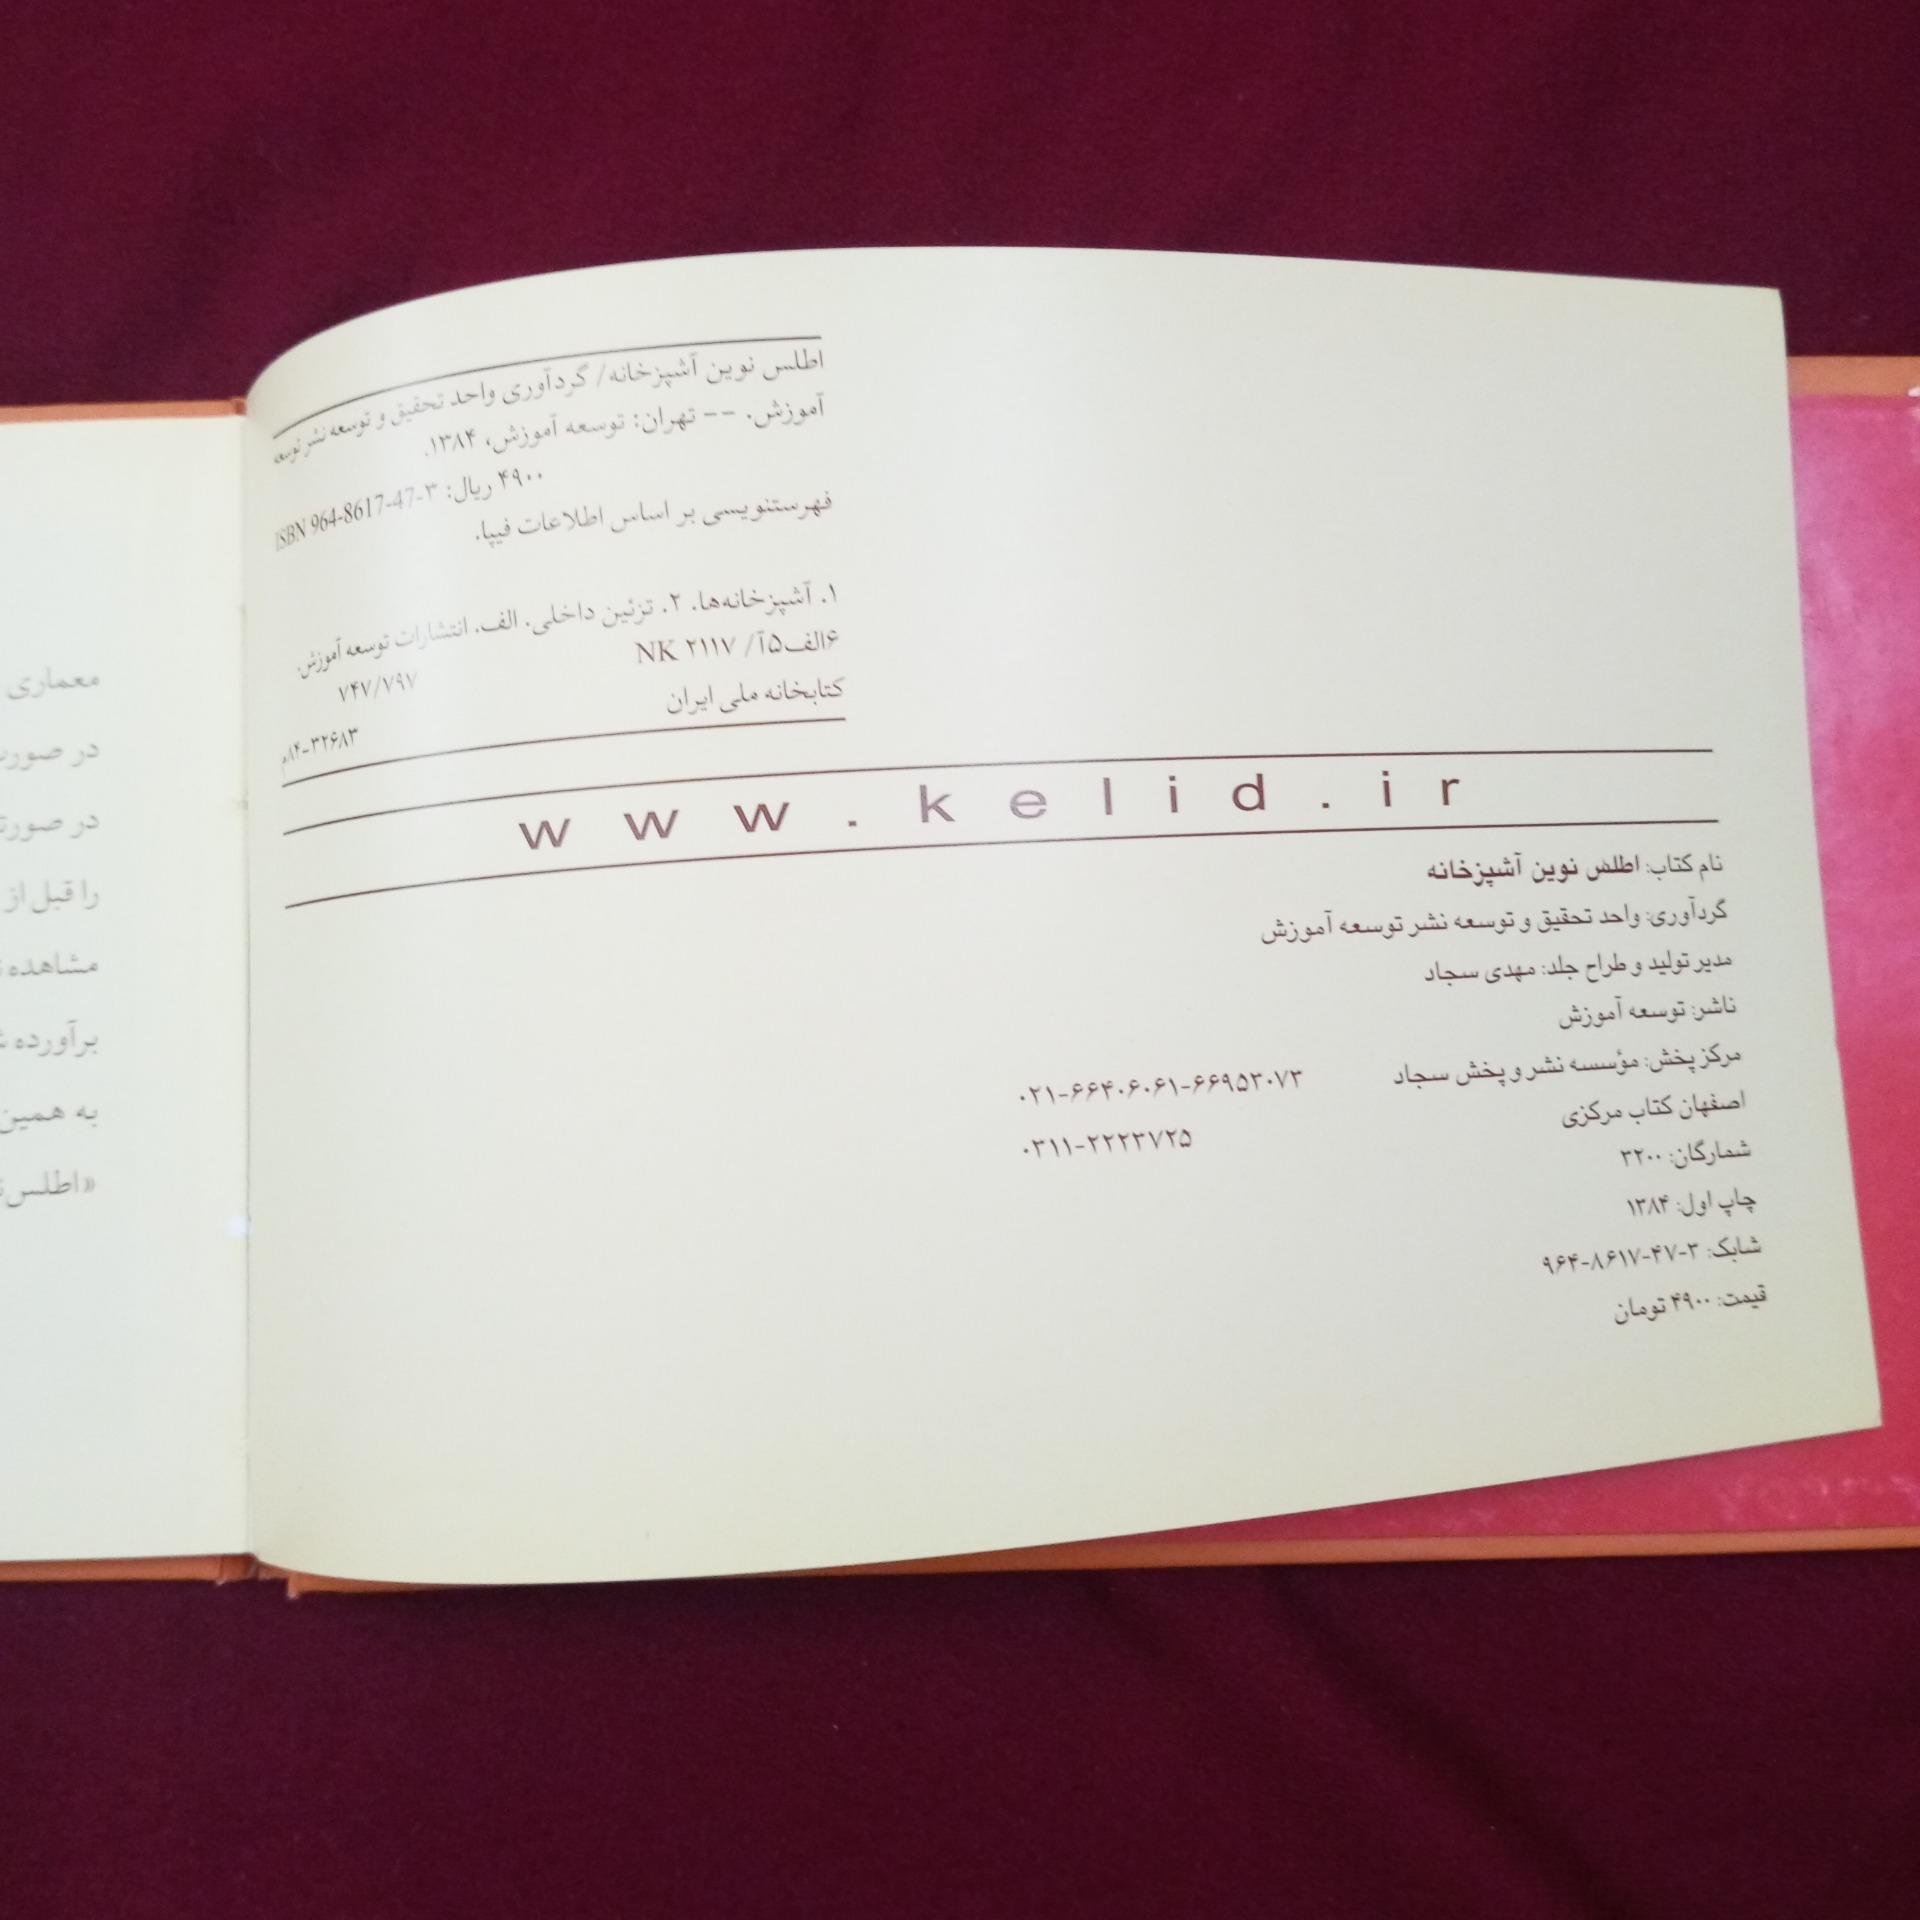 اطلس نوین آشپزخانه/ گردآوری واحد تحقیق و توسعه نشر توسعه
آموزش. -- تهران: توسعه آموزش، ۱۳۸۴.
۴۹۰۰ ریال: ISBN 964-8617-47-۳
فهرستنویسی بر اساس اطلاعات فیپا.
۱. آشپزخانه‌ها. ۲. تزئین داخلی. الف. انتشارات توسعه آموزش.
۶الف۵آ/ NK ۲۱۱۷ ۷۴۷/۷۹۷
کتابخانه ملی ایران ۸۴-۳۲۶۸۳م
www.kelid.ir
نام کتاب: اطلس نوین آشپزخانه
گردآوری: واحد تحقیق و توسعه نشر توسعه آموزش
مدیر تولید و طراح جلد: مهدی سجاد
ناشر: توسعه آموزش
مرکز پخش: مؤسسه نشر و پخش سجاد ۰۲۱-۶۶۴۰۶۰۶۱-۶۶۹۵۳۰۷۳
اصفهان کتاب مرکزی ۰۳۱۱-۲۲۲۳۷۲۵
شمارگان: ۳۲۰۰
چاپ اول: ۱۳۸۴
شابک: ۹۶۴-۸۶۱۷-۴۷-۳
قیمت: ۴۹۰۰ تومان
معماری
در صورت
در صورت
را قبل از
مشاهده
برآورده
به همین
«اطلس